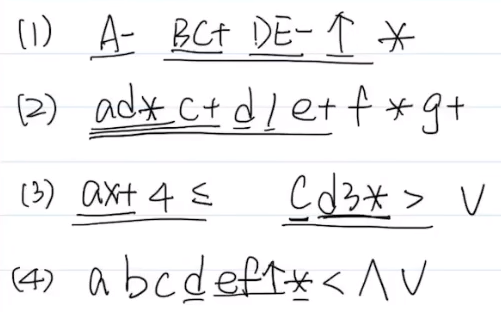 (1) A- BC+ DE- ↑ *
(2) ad* c+ d / e+ f * g+
(3) ax+ 4 ≤ Cd3* > ∨
(4) a b c d ef↑* < ∧ ∨